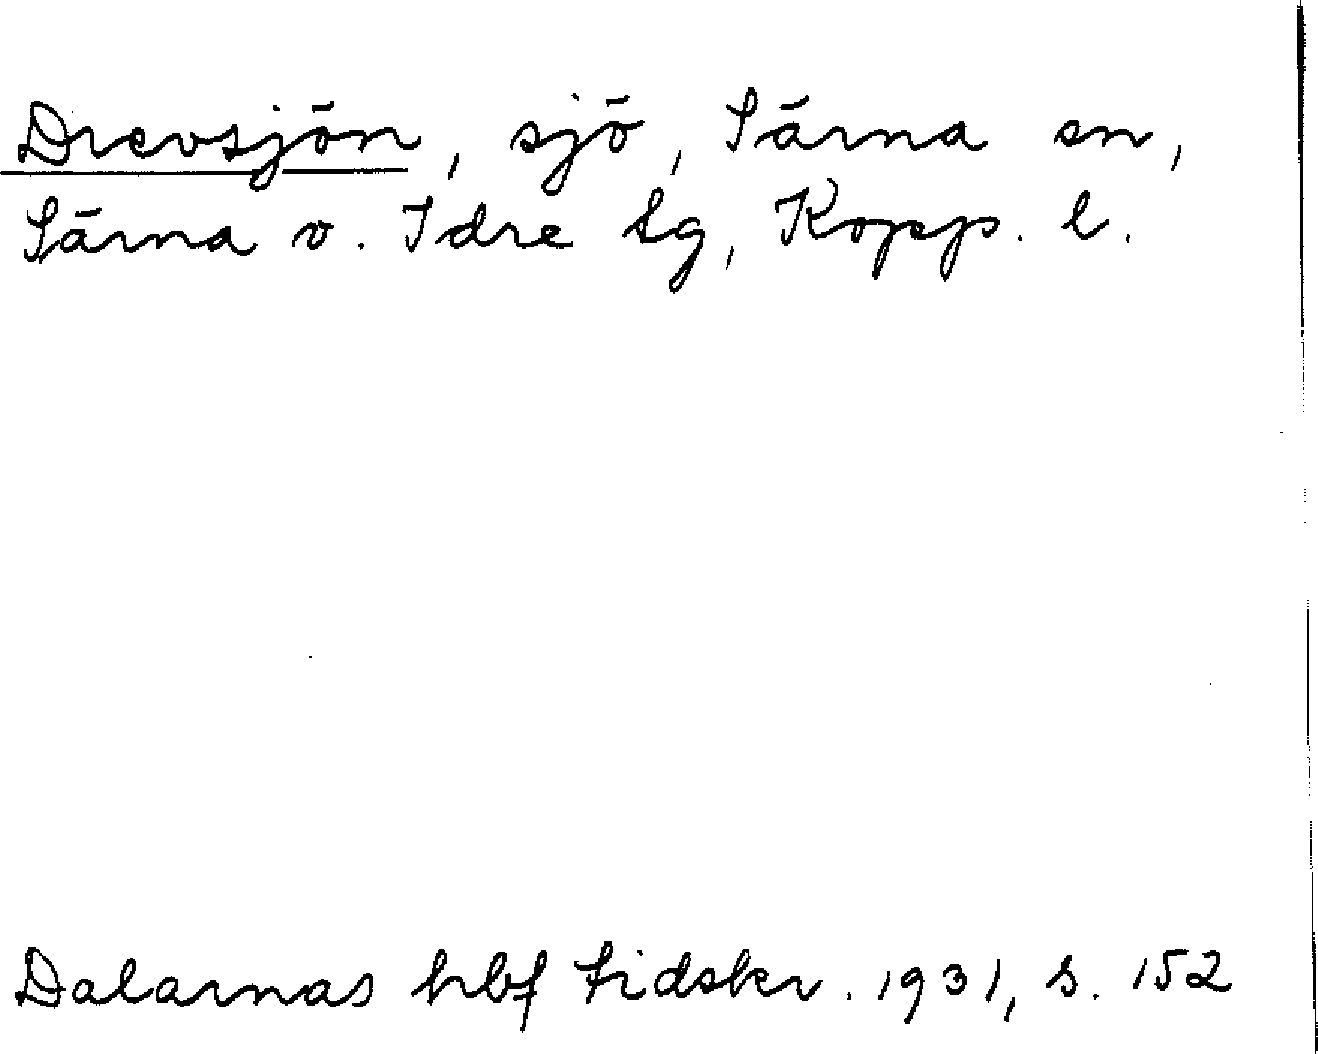 Drevsjön, sjö, Särna sn,
Särna o. Idre tg, Kopp. l.
Dalarnas hbf tidskr. 1931, s. 152